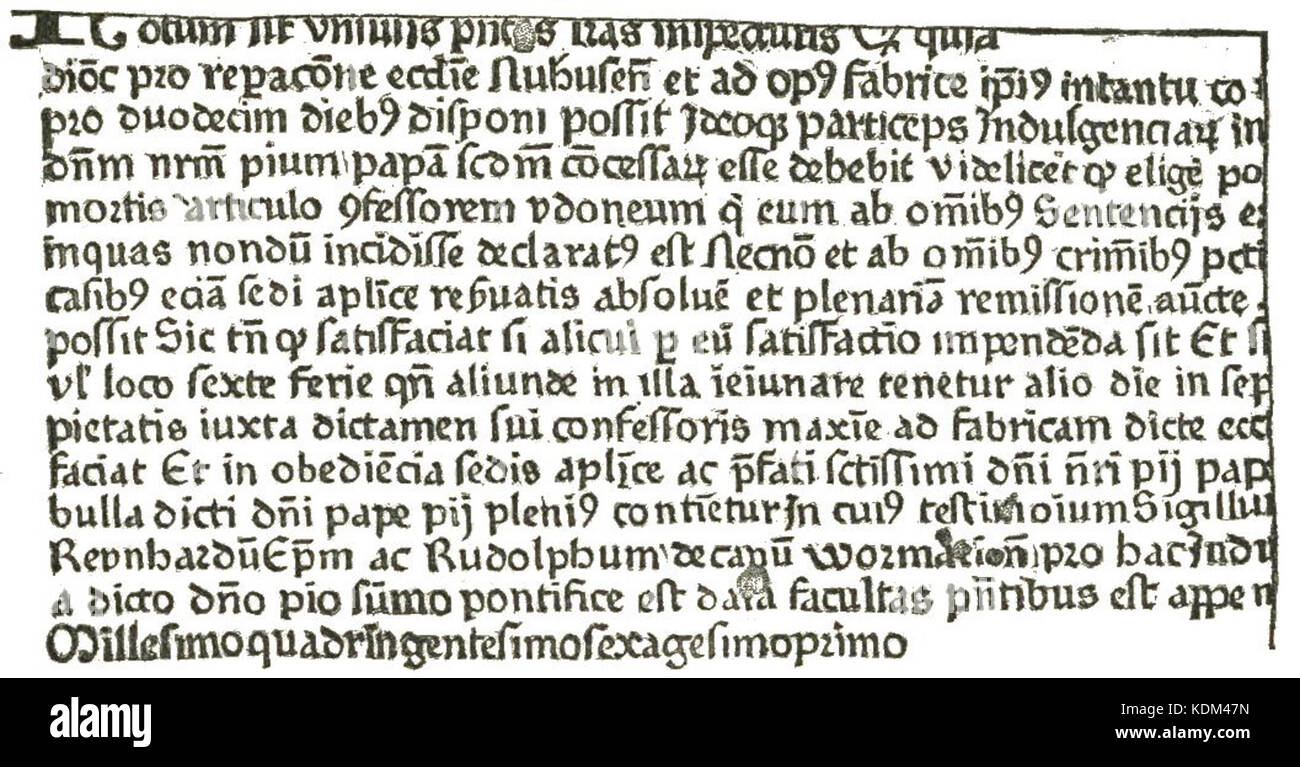 Notum sit vniuersis
bioc̄ pro repacōne eccl̄ie Nuhuseñ et ad opꝰ fabrice ip̄iꝰ intantu co
pro duodecim diebꝰ disponi possit Ideoqꝫ particeps Indulgenciaꝝ in
dn̄m nrm̄ pium papā scdm̄ cōcessaꝝ esse debebit videlicet ꝙ eligē po
mortis articulo ꝯfessorem ydoneum q̇ eum ab om̄ibꝰ Sentencijs e
inquas nondū incidisse declaratꝰ est Necnō et ab om̄ibꝰ crim̄ibꝰ pcti
casibꝰ eciā sedi apl̄ice res̄uatis absoluē et plenariā remissionē aūcte
possit Sic tn̄ ꝙ satisfaciat si alicui ꝑ eū satisfactio impendēda sit Et si
vl' loco sexte ferie qn̄ aliunde in illa ieiunare tenetur alio die in sep
pietatis iuxta dictamen sui confessoris maxīe ad fabricam dicte ecc
faciat Et in obediēcia sedis apl̄ice ac p̄fati sctissimi dn̄i n̄ri pij pap
bulla dicti dn̄i pape pij pleniꝰ contīetur In cuiꝰ testimoīum Sigillu
Reynhardū Ep̄m ac Rudolphum decanū wormacioñ pro hac Indu
a dicto dn̄o pio sūmo pontifice est data facultas pn̄tibus est appen
Millesimoquadringentesimosexagesimoprimo
alamy
Image ID: KDM47N
www.alamy.com